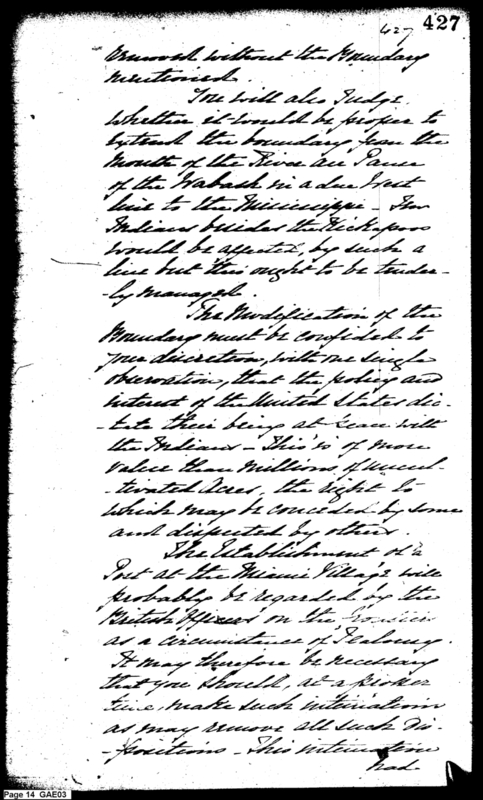 427
427
removed without the Boundary
mentioned.
You will also Judge
whether it would be proper to
extend the boundary from the
Mouth of the River au Panse
of the Wabash in a due West
line to the Mississippi - Few
Indians besides the Kickapoos
would be affected, by such a
line but this ought to be tender-
-ly managed.
The Modification of the
Boundary must be confided to
your discretion, with one single
observation, that the policy and
interest of the United States dic-
-tate their being at Peace with
the Indians - This is of more
value than millions of uncul-
-tivated Acres, the right to
which may be conceded by some
and disputed by others.
The Establishment of a
Post at the Miami Village will
probably be regarded by the
British Officers on the frontiers
as a circumstance of Jealousy.
It may therefore be necessary
that you should, at a proper
time, make such intimations
as may remove all such dis-
-positions - This intimation
had
Page 14 GAE03